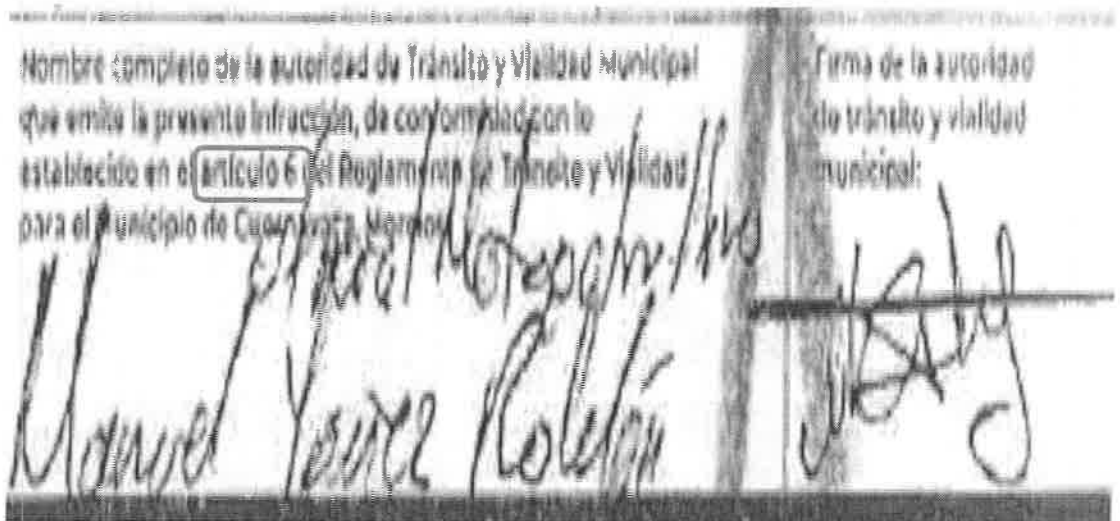 Nombre completo de la autoridad de Tránsito y Vialidad Municipal
que emite la presente infracción, de conformidad con lo
establecido en el artículo 6 del Reglamento de Tránsito y Vialidad
para el Municipio de Cuernavaca, Morelos
Firma de la autoridad
de tránsito y vialidad
municipal:
Manuel